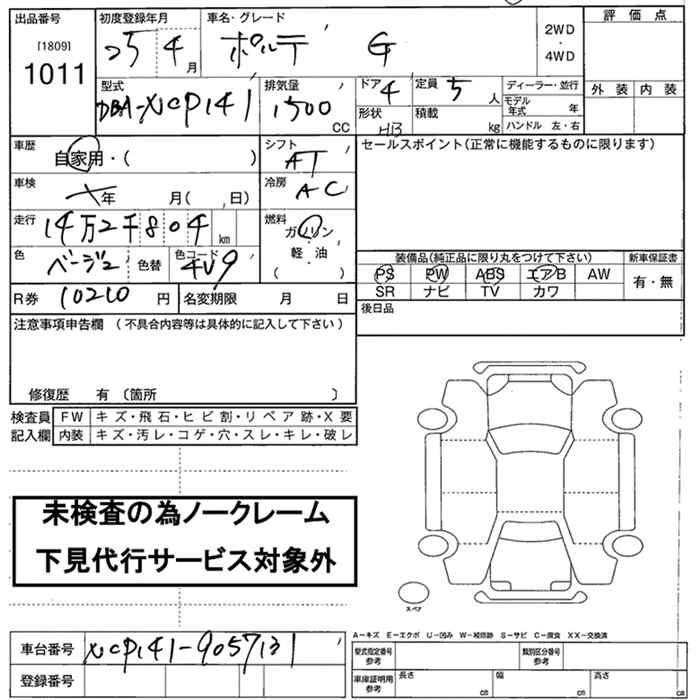 出品番号
[1809]
1011
初度登録年月
25 4 月
車名・グレード
ポルテ G
2WD
・
4WD
評価点
外装 内装
型式
DBA-NCP141
排気量
1500 CC
ドア 4
定員 5 人
形状 HB
積載 kg
ディーラー・並行
モデル年式 年
ハンドル 左・右
車歴
自家用・( )
シフト
AT
セールスポイント(正常に機能するものに限ります)
車検
年 月( 、日)
冷房
AC
走行
14万2千804 km
燃料
ガソリン
軽・油
( )
色
ベージュ
色替
色コード
4V9
装備品(純正品に限り丸をつけて下さい)
新車保証書
PS PW ABS エアB AW
SR ナビ TV カワ
有・無
R券 10210 円
名変期限 月 日
後日品
注意事項申告欄 (不具合内容等は具体的に記入して下さい)
修復歴 有〔箇所 〕
検査員記入欄
FW キズ・飛石・ヒビ割・リペア跡・X要
内装 キズ・汚レ・コゲ・穴・スレ・キレ・破レ
未検査の為ノークレーム
下見代行サービス対象外
スペア
車台番号 NCP141-9057131
登録番号
A-キズ E-エクボ U-凹み W-補修跡 S-サビ C-腐食 XX-交換済
型式指定番号 参考
類別区分番号 参考
車庫証明用 参考
長さ cm
幅 cm
高さ cm